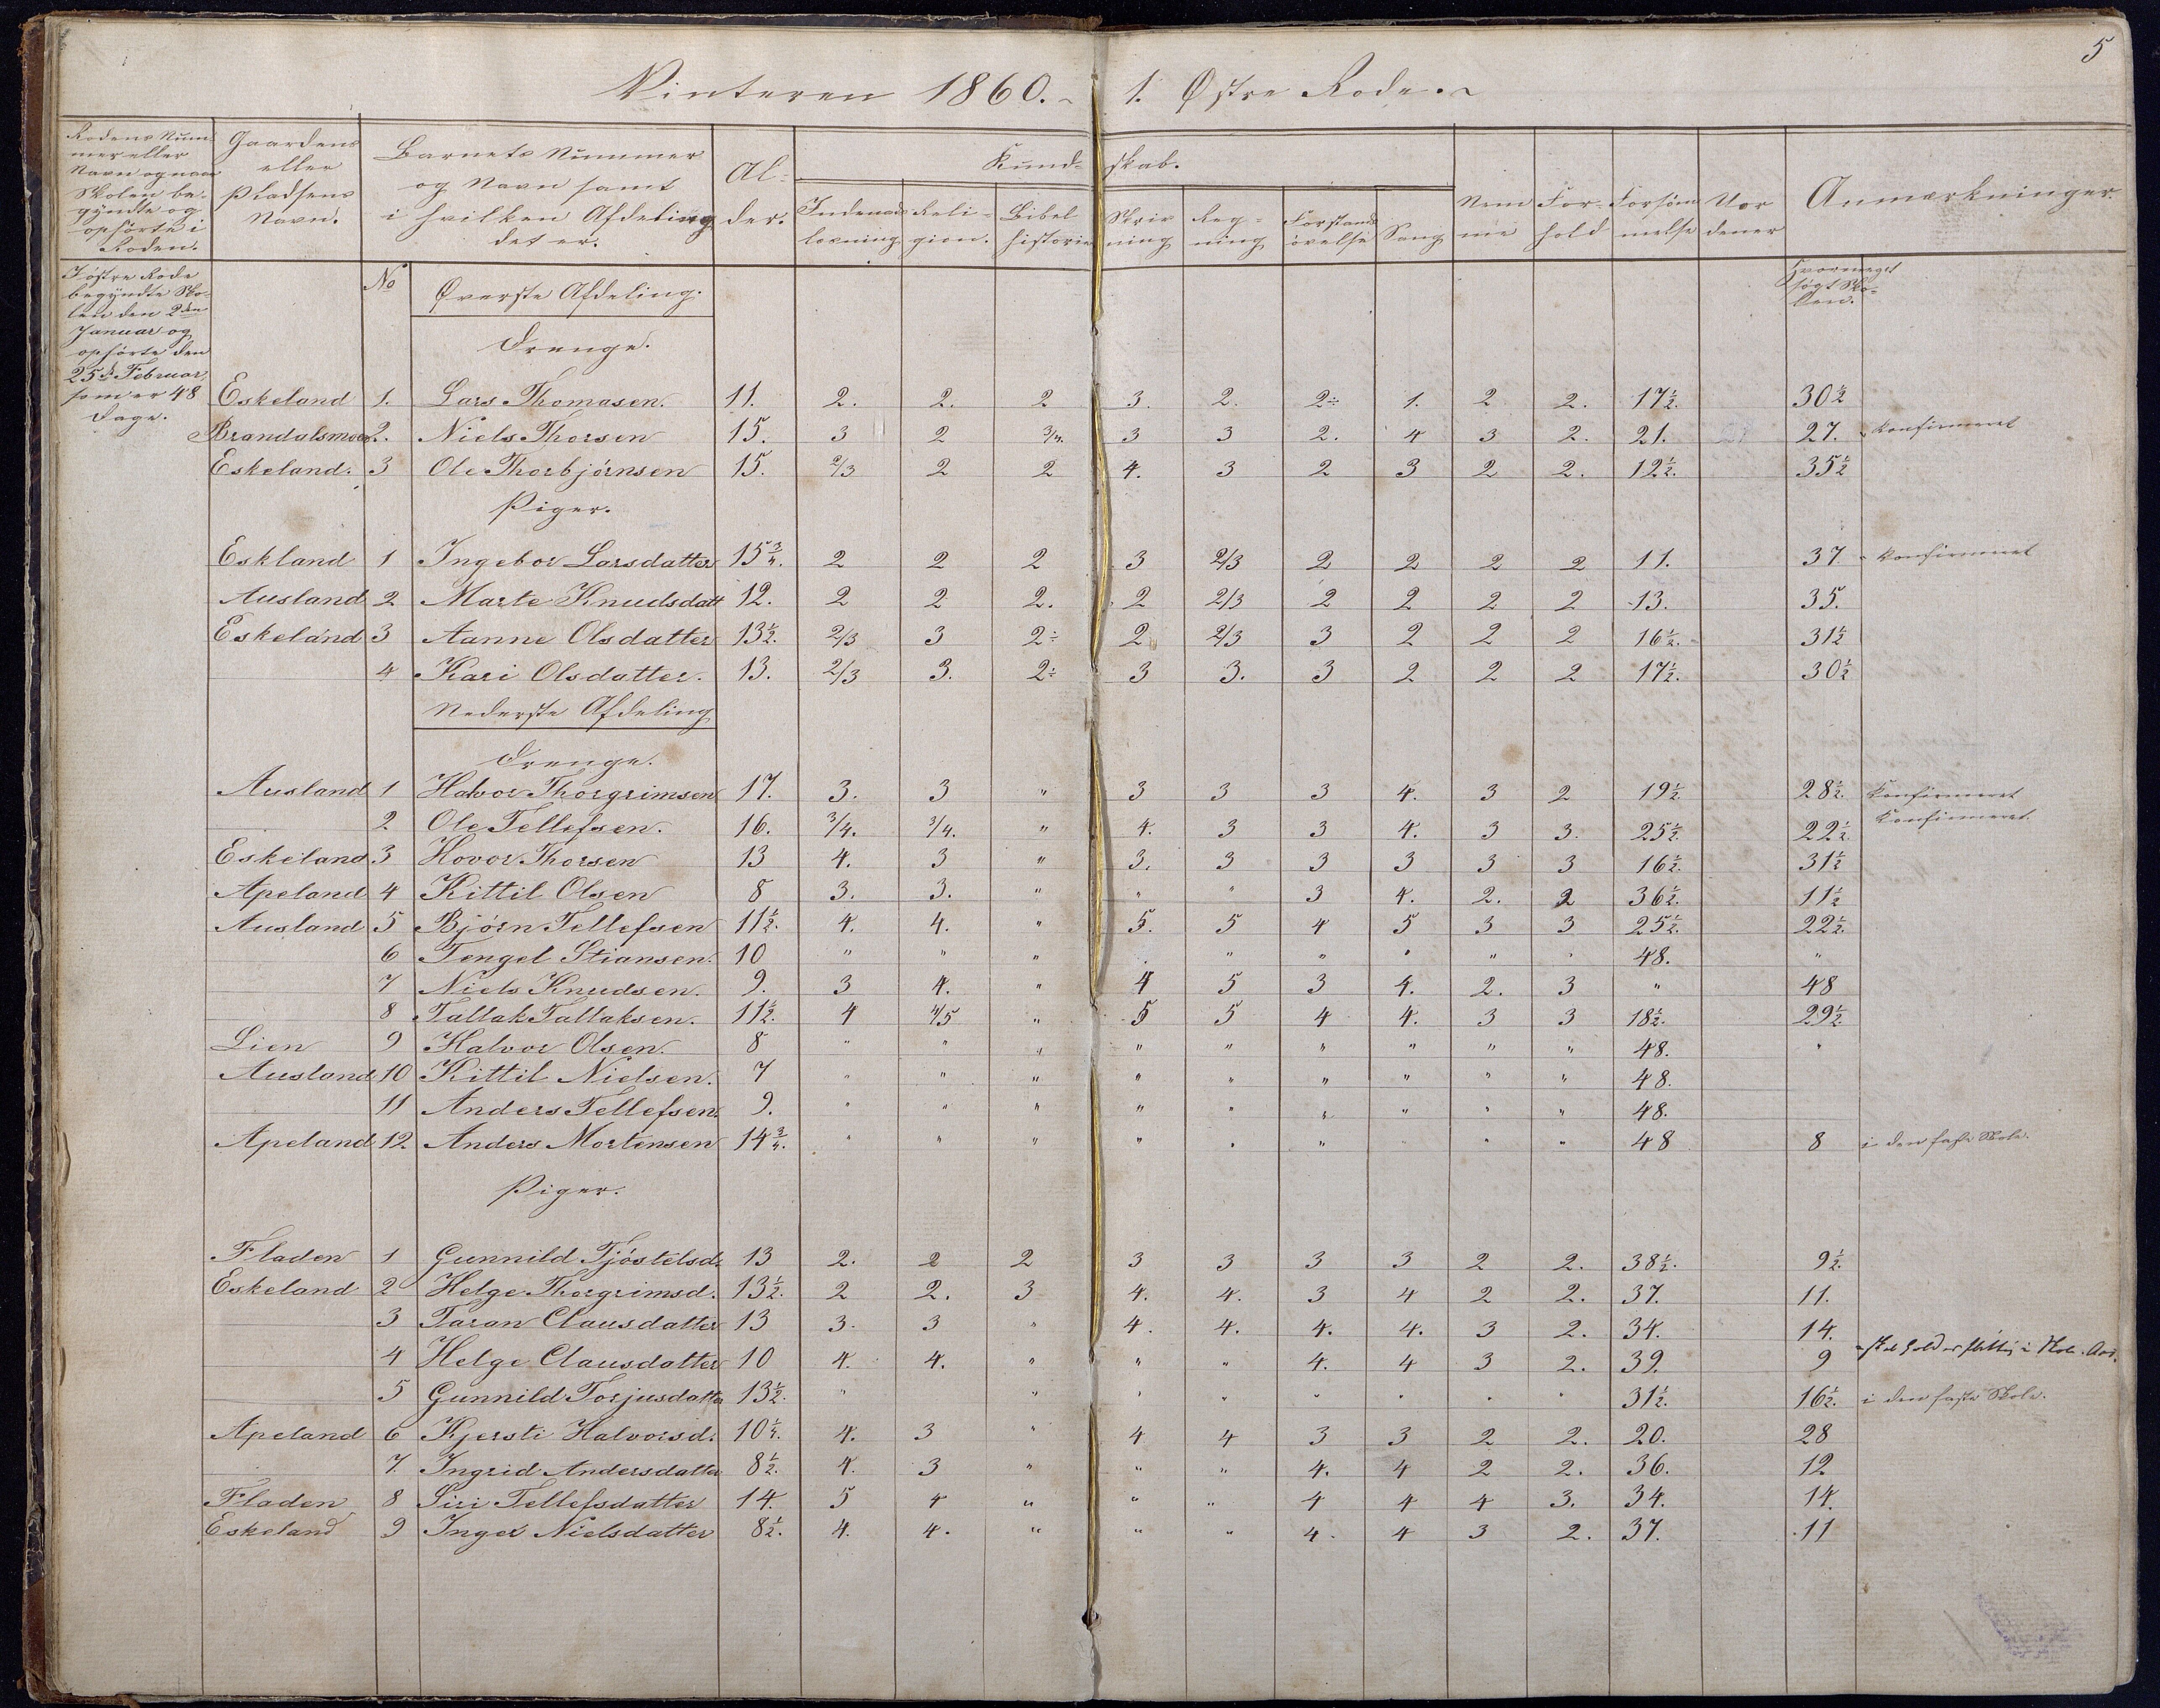 5
Vinteren 1860. 1. Østre Rode.
Rodens Num-
mer eller
Navn og naar
Skolen be-
gyndte og
ophørte i
Roden.
Gaardens
eller
Pladsens
Navn.
Barnets Nummer
og Navn samt
i hvilken Afdeling
det er.
Al-
der.
Kund- skab.
Indenads
læsning
Reli-
gion.
Bibel
historie
Skriv
ning
Reg-
ning
Forstands
øvelse
Sang
Nem
me
For-
hold
Forsøm
melse
Vor
dener
Anmærkninger.
I østre Rode
begyndte Sko-
len den 2den
Januar og
ophørte den
25de Februar,
som er 48
Dage.
No
Øverste Afdeling.
Hvormeget
søgt Sko-
len.
Drenge.
Eskeland 1. Lars Thomasen. 11. 2. 2. 2 3. 2. 2÷ 1. 2 2. 17½. 30½
Brandalsmoen 2. Niels Thorsen 15. 3 2 3/4. 3 3 2. 4 3 2. 21. 27. konfirmeret
Eskeland. 3 Ole Thorbjørnsen 15. 2/3 2 2 4. 3 2 3 2 2. 12½. 35½
Piger.
Eskland 1 Ingebor Larsdatter 15¾. 2 2 2 3 2/3 2 2 2 2 11. 37. konfirmeret
Ausland 2 Marte Knudsdatt 12. 2 2 2. 2 2/3 2 2 2 2 13. 35.
Eskeland 3 Aanne Olsdatter 13½. 2/3 3 2÷ 2 2/3 3 2 2 2 16½. 31½
4 Kari Olsdatter. 13. 2/3 3. 2÷ 3 3. 3 2 2 2 17½. 30½
Nederste Afdeling
Drenge.
Ausland 1 Halvor Thorgrimsen 17. 3. 3 " 3 3 3 4. 3 2 19½. 28½. Konfirmeret
2 Ole Tellefsen. 16. 3/4. 3/4. " 4. 3 3 4. 3 3. 25½. 22½. Konfirmeret.
Eskeland 3 Hovor Thorsen 13 4. 3 " 3. 3 3 3 3 3 16½. 31½
Apeland 4 Kittil Olsen 8 3. 3. " " " 3 4. 2. 2 36½. 11½
Ausland 5 Bjørn Tellefsen 11½. 4. 4. " 5. 5 4 5 3 3 25½. 22½.
6 Tengel Stiansen. 10 " " " " " " " " " 48. "
7 Niels Knudsen. 9. 3 4. " 4 5 3 4. 2. 3 " 48
8 Tallak Tallaksen. 11½. 4 4/5 " 5 5 4 4. 3 3 18½. 29½.
Lien 9 Halvor Olsen. 8 " " " " " " " " " 48. "
Ausland 10 Kittil Nielsen. 7 " " " " " " " " " 48.
11 Anders Tellefsen. 9. " " " " " " " " " 48.
Apeland 12. Anders Mortensen 14¾. " " " " " " " " 48 8 i den faste Skole.
Piger.
Fladen 1 Gunnild Tjöstelsd. 13 2. 2 2 3 3 3 3 2 2. 38½. 9½.
Eskeland 2 Helge Thorgrimsd. 13½. 2 2. 3 4. 4. 3 4 2 2. 37. 11.
3 Taran Clausdatter 13 3. 3 " 4. 4. 4. 4. 3 2. 34. 14.
4 Helge Clausdatter 10 4. 4. " " " 4. 4 3 2. 39. 9
5 Gunnild Torjusdatter 13½. " " " " " " " " 31½. 16½. i den faste Skole.
Apeland 6 Kjersti Halvorsd. 10½. 4. 3 " 4 4 3 3 2 2. 20. 28
7. Ingrid Andersdatter 8½. 4. 3 " " " 4. 4 2 2. 36. 12
Fladen 8 Siri Tellefsdatter 14. 5 4 " " " 4 4 4 3. 34. 14.
Eskeland 9 Inger Nielsdatter 8½. 4. 4. " " " 4. 4 3 2. 37. 11